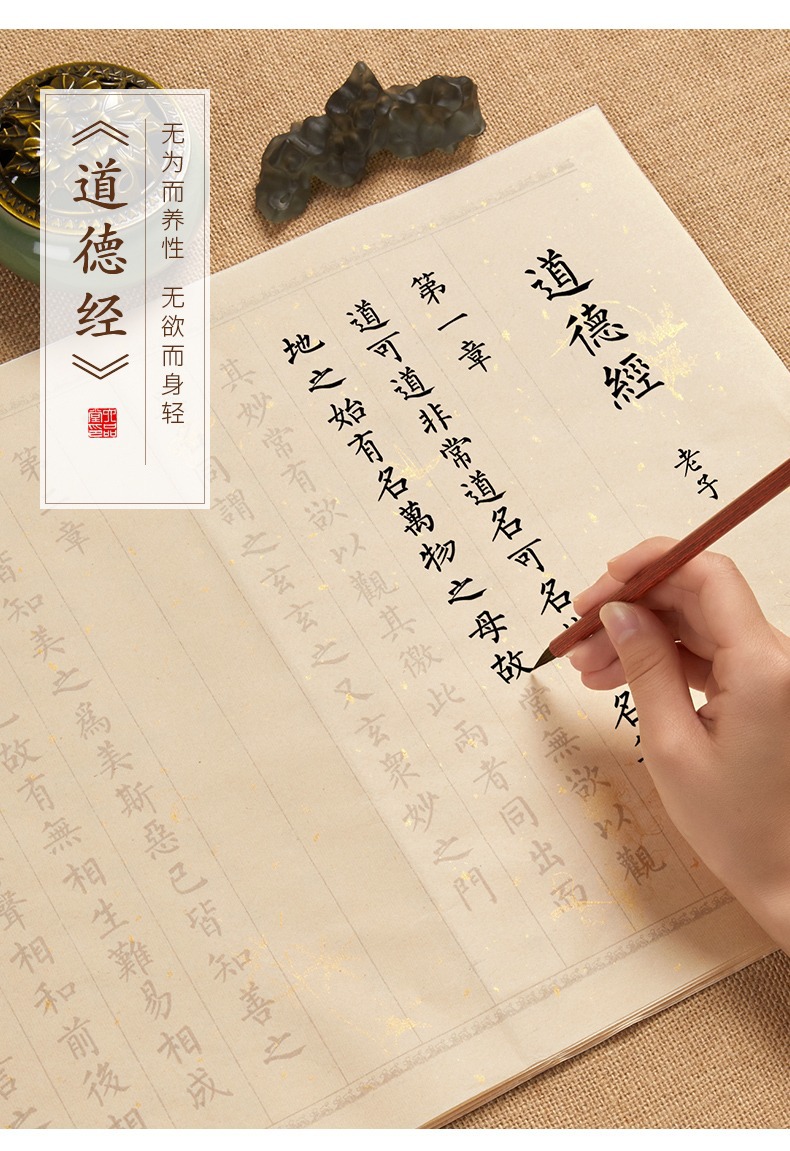 《道德经》
无为而养性 无欲而身轻
道德經
老子
第一章
道可道非常道名可名 名
地之始有名萬物之母故常無欲以觀
其妙常有欲以觀其徼此兩者同出而
同謂之玄玄之又玄衆妙之門
第 章
皆知美之爲美斯惡已皆知善之
故有無相生難易相成
聲相和前後相
言之